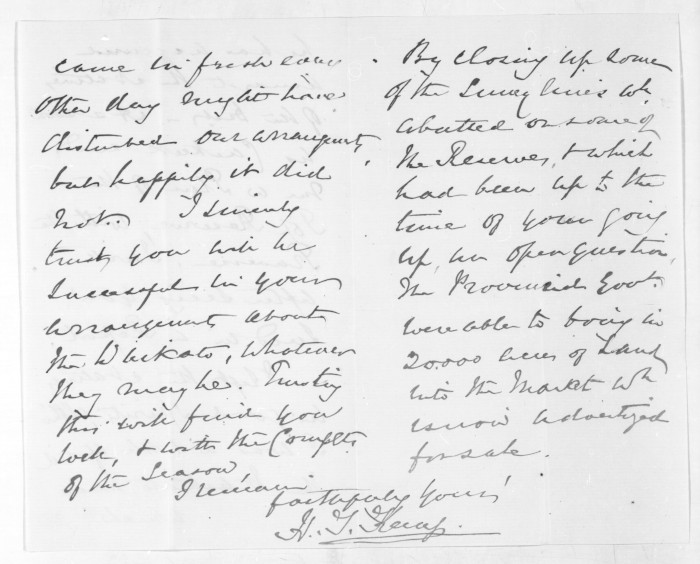 came in fresh some
other day might have
disturbed our arrangents,
but happily it did
not. I sincerely
trust you will be
successful in your
arrangements about
the Waikato, whatever
they may be. Trusting
this will find you
well, & with the Complts
of the Season,
I remain
faithfully Yours
H. T. Kemp.
By closing up some
of the Survey lines wh.
abutted on some of
the Reserves, & which
had been up to the
time of your going
up, an open question,
the Provincial Govt.
were able to bring in
20.000 acres of Land
into the Market wh
is now advertized
for sale.